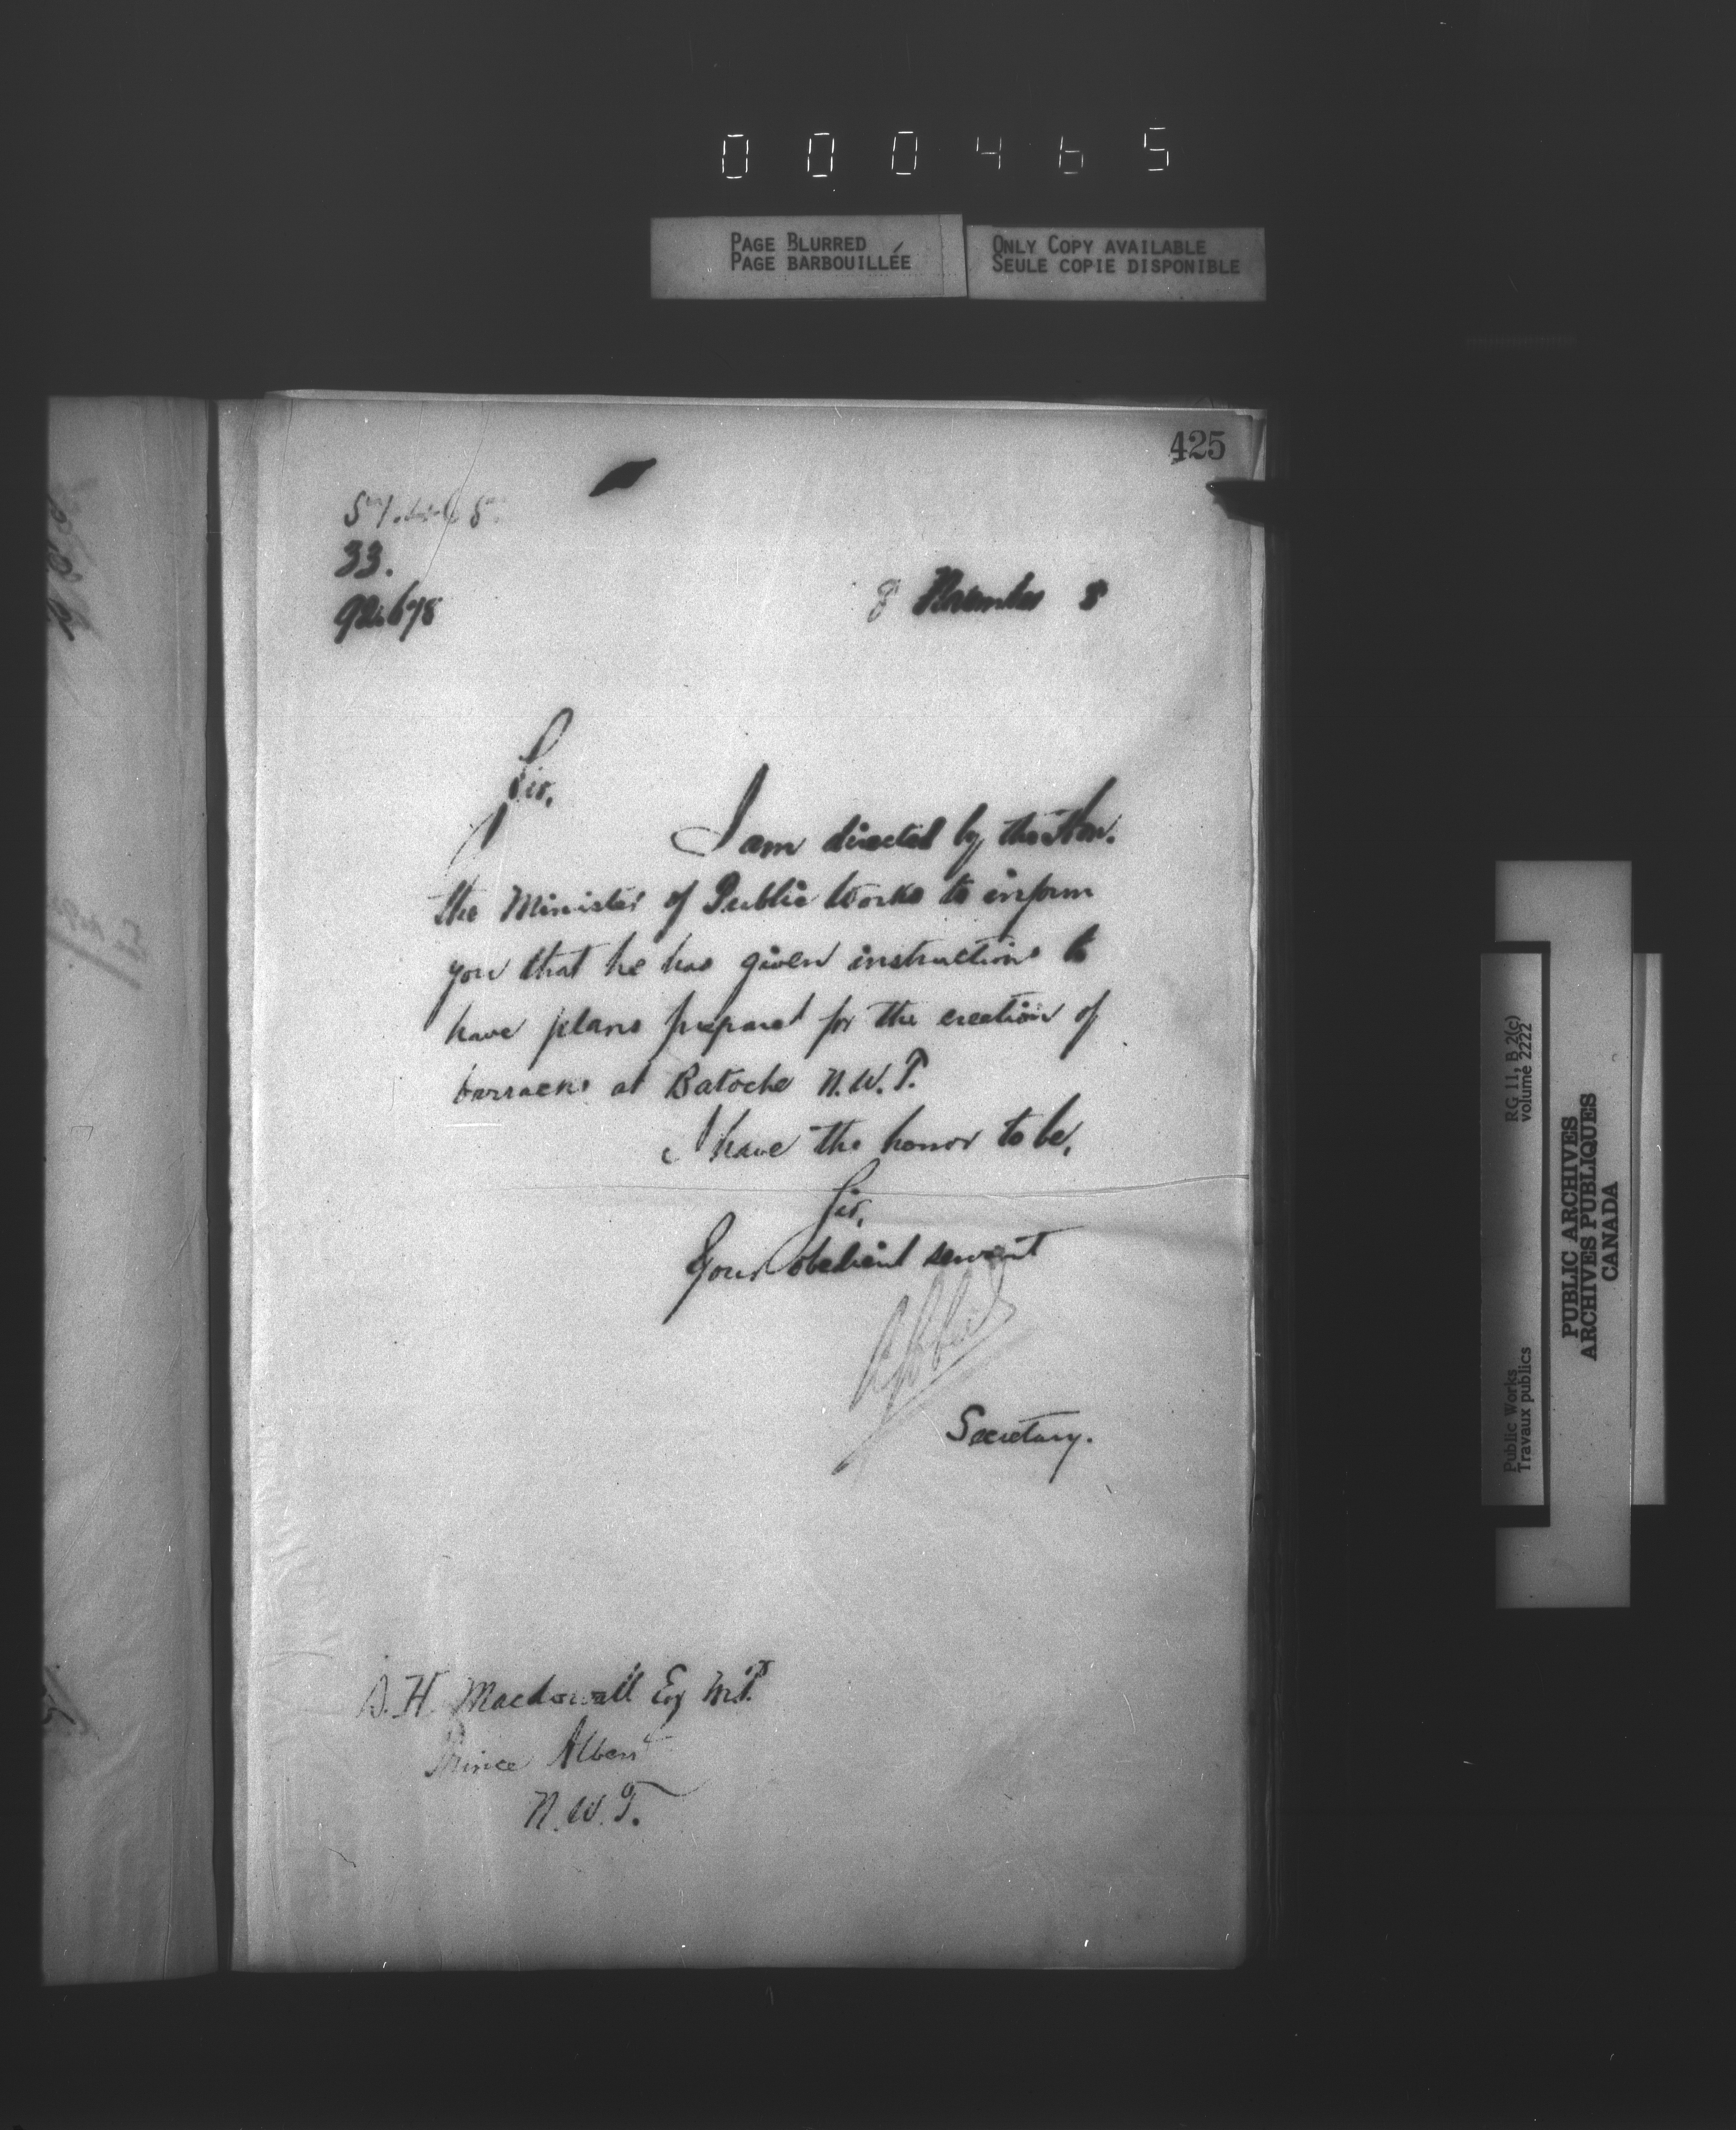 000465
PAGE BLURRED
PAGE BARBOUILLÉE
ONLY COPY AVAILABLE
SEULE COPIE DISPONIBLE
425
33.
8 November 8
Sir,
I am directed by the Hon.
the Minister of Public Works to inform
you that he has given instructions to
have plans prepared for the erection of
barracks at Batoche N.W.T.
I have the honor to be,
Sir,
Your obedient servant
Secretary.
D. H. Macdowall Esq M.P.
Prince Albert
N.W.T.
Public Works
Travaux publics
RG 11, B 2(c)
volume 2222
PUBLIC ARCHIVES
ARCHIVES PUBLIQUES
CANADA